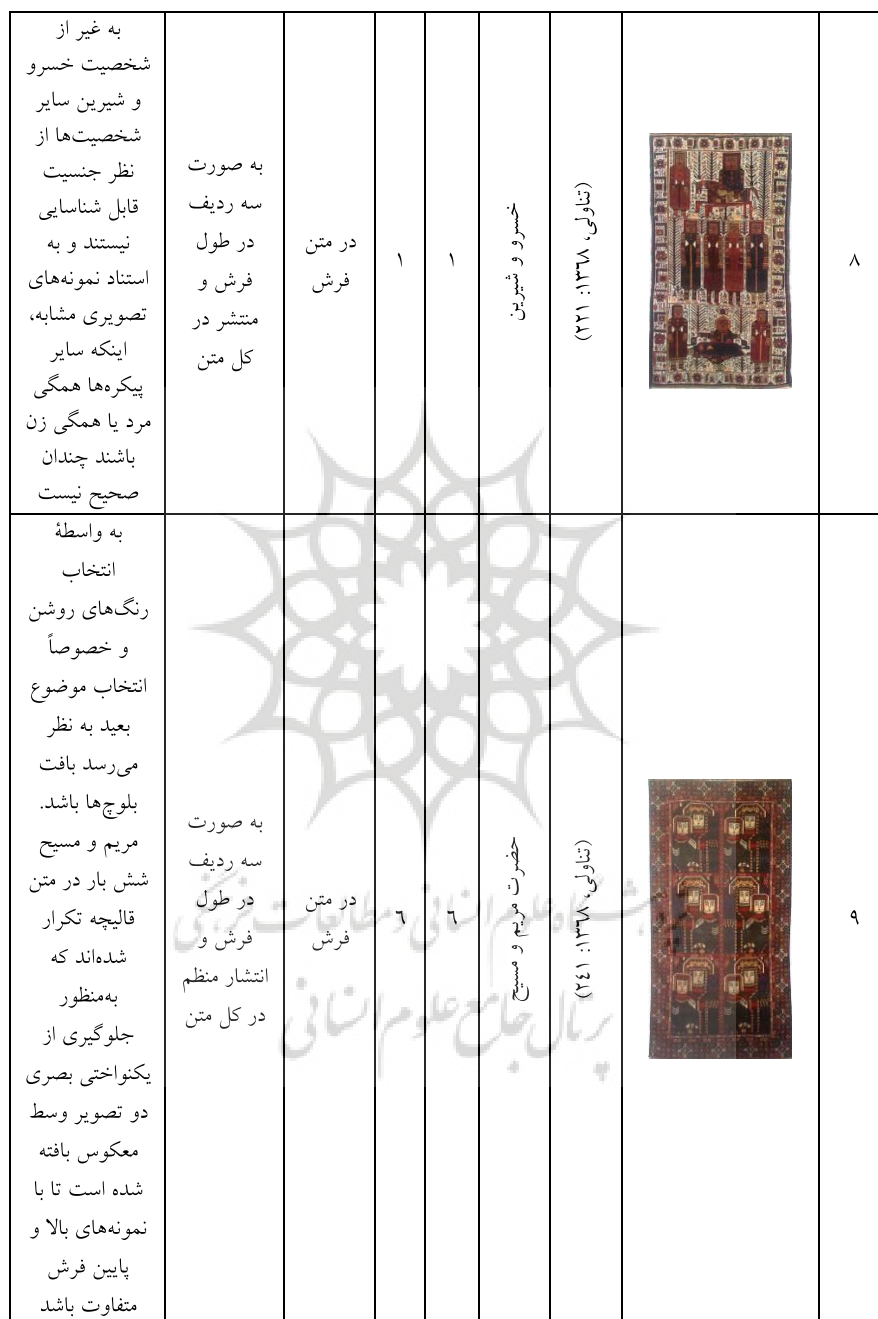 ۸
(تناولی، ۱۳۶۸: ۲۲۱)
خسرو و شیرین
۱
۱
در متن
فرش
به صورت
سه ردیف
در طول
فرش و
منتشر در
کل متن
به غیر از
شخصیت خسرو
و شیرین سایر
شخصیت‌ها از
نظر جنسیت
قابل شناسایی
نیستند و به
استناد نمونه‌های
تصویری مشابه،
اینکه سایر
پیکره‌ها همگی
مرد یا همگی زن
باشند چندان
صحیح نیست
۹
(تناولی، ۱۳۶۸: ۲۴۱)
حضرت مریم و مسیح
۶
۶
در متن
فرش
به صورت
سه ردیف
در طول
فرش و
انتشار منظم
در کل متن
به واسطهٔ
انتخاب
رنگ‌های روشن
و خصوصاً
انتخاب موضوع
بعید به نظر
می‌رسد بافت
بلوچ‌ها باشد.
مریم و مسیح
شش بار در متن
قالیچه تکرار
شده‌اند که
به‌منظور
جلوگیری از
یکنواختی بصری
دو تصویر وسط
معکوس بافته
شده است تا با
نمونه‌های بالا و
پایین فرش
متفاوت باشد
پژوهشگاه علوم انسانی و مطالعات فرهنگی
پرتال جامع علوم انسانی